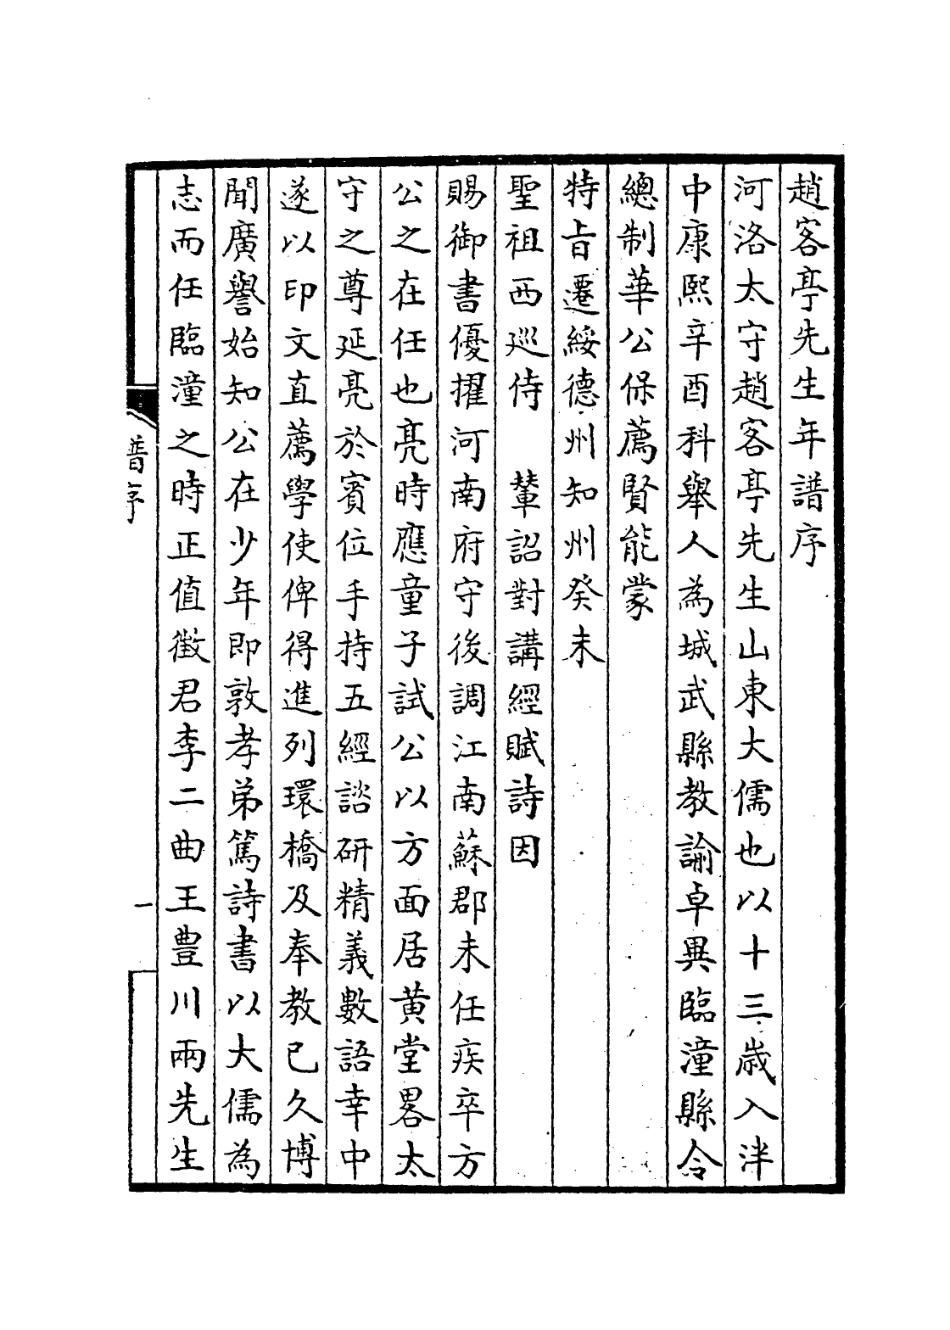 趙客亭先生年譜序
河洛太守趙客亭先生山東大儒也以十三歲入泮
中康熙辛酉科舉人為城武縣教諭卓異臨潼縣令
總制華公保薦賢能蒙
特旨遷綏德州知州癸未
聖祖西巡侍　輦詔對講經賦詩因
賜御書優擢河南府守後調江南蘇郡未任疾卒方
公之在任也亮時應童子試公以方面居黃堂畧太
守之尊延亮於賓位手持五經諮研精義數語幸中
遂以印文直薦學使俾得進列環橋及奉教已久博
聞廣譽始知公在少年即敦孝弟篤詩書以大儒為
志而任臨潼之時正值徵君李二曲王豊川兩先生
譜序
一